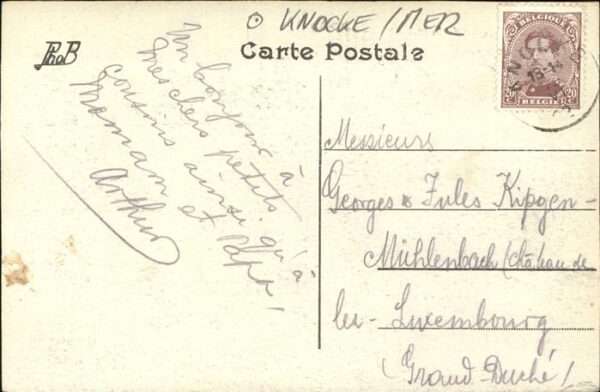 PhoB
O KNOCKE / MER
Carte Postale
BELGIQUE
20 20
BELGIË
KNOCKE
13-14
Un bonjour à
mes chers petits
cousins ainsi qu'à
Maman et Papa,
Arthur
Messieurs
Georges & Jules Kipgen-
Mühlenbach (château de
lez-Luxembourg
(Grand-Duché)